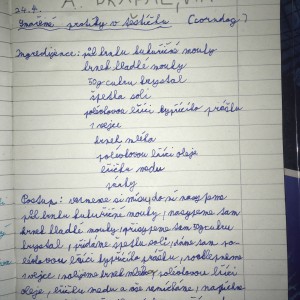 24.4.
Smažené párky v těstíčku (corndog)
Ingredijence: půl hrnku kukuřičné mouky
hrnek hladké mouky
50g cukru krystal
špetka soli
polévkové lžíci kypřícího prášku
1 vejce
hrnek mléka
polévkovou lžíci oleje
lžička medu
párky
Postup: vezmeme si mísu, do ní nasypeme
půl hrnku kukuřičné mouky, nasypeme tam
hrnek hladké mouky, přisypeme tam 50g cukru
krystal, přidáme špetku soli, dáme tam po-
lévkovou lžíci kypřícího prášku, rozklepneme
1 vejce, nalijeme hrnek mléka, polévkovou lžíci
oleje, lžičku medu a vše smícháme, napíchne